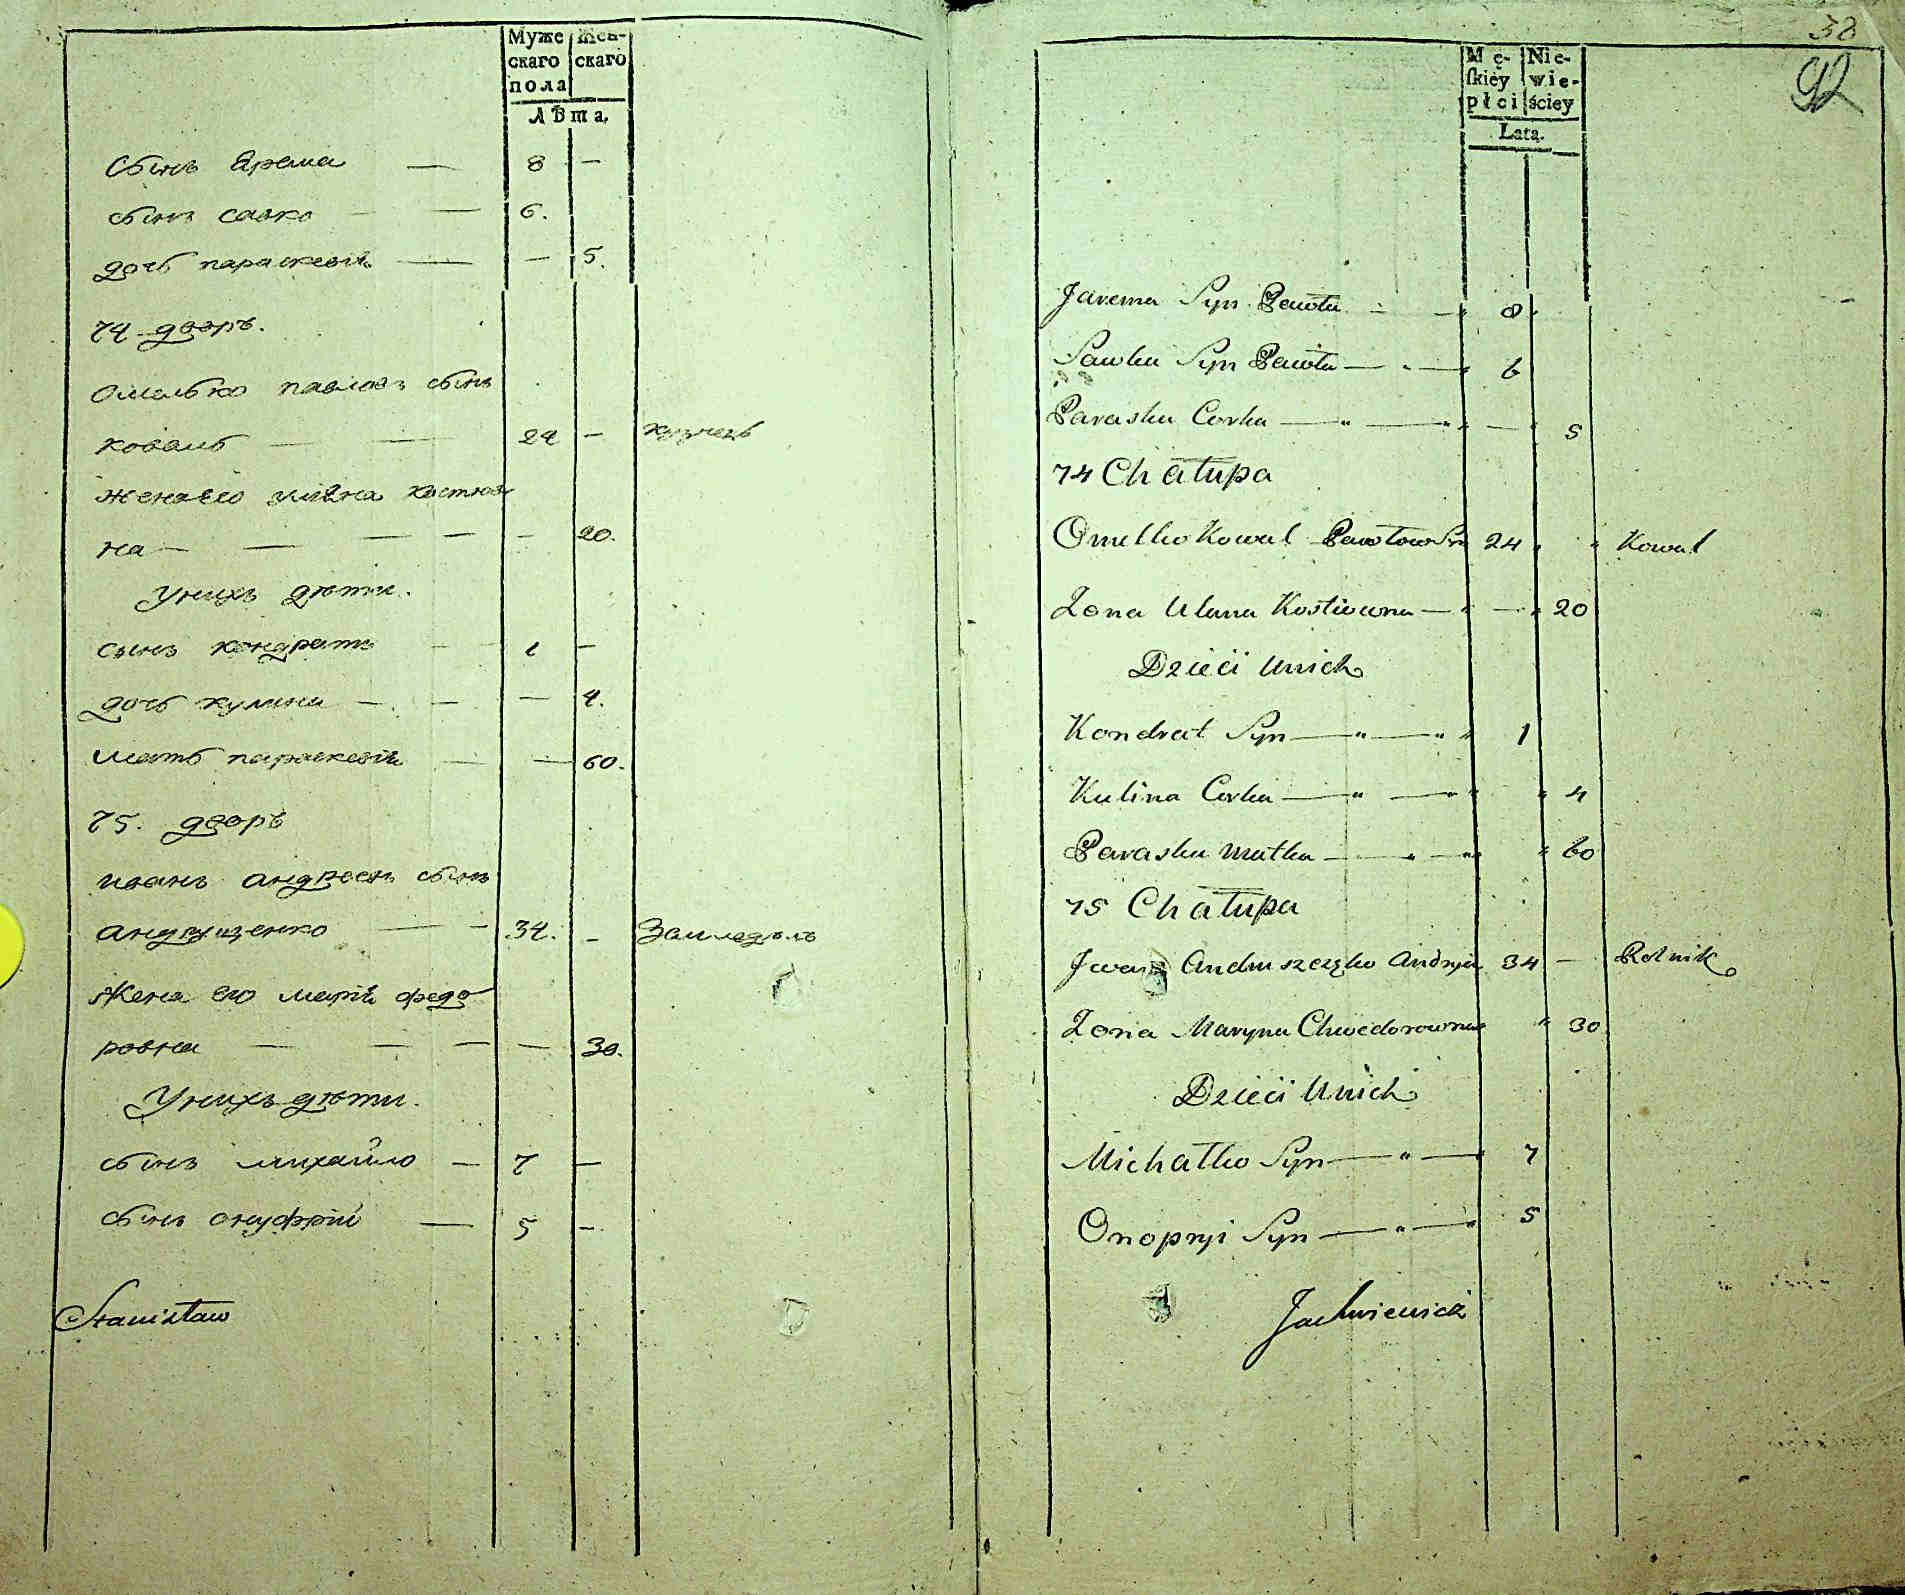 Муже Жен-
скаго скаго
пола
лѣта.
сынъ Ярема — 8 —
сынъ савко — 6.
дочь параскевiя — — 5.
74 дворъ.
Омелько павловъ сынъ
коваль — — 24 — кузнецъ
жена его улiяна костюв
на — — — — — 20.
У нихъ дѣти.
сынъ кондратъ — 1 —
дочь кулина — — — 4.
мать параскевiя — — 60.
75. дворъ
иванъ андреевъ сынъ
андрущенко — — 34. — Земледѣлъ
Жена его марiя федо
ровна — — — — 30.
У нихъ дѣти.
сынъ михайло — 7 —
сынъ онуфрiй — 5 —
Stanisław
38
92
Mę- Nie-
ſkiey wie-
płci ściey
Lata.
Jarema Syn Pawła — — 8
Sawka Syn Pawła — — 6
Paraska Corka — — — 5
74 Chałupa
Omelko Kowal Pawłow Syn 24 Kowal
Zona Ulana Kostiowna — — 20
Dzieci Unich
Kondrat Syn — — 1
Kulina Corka — — 4
Paraska Matka — — 60
75 Chałupa
Jwan Andruszczęko Andryia 34 — Rolnik
Zona Maryna Chwedorowna 30
Dzieci Unich
Michałko Syn — — 7
Onopryi Syn — — 5
Jachniewicz